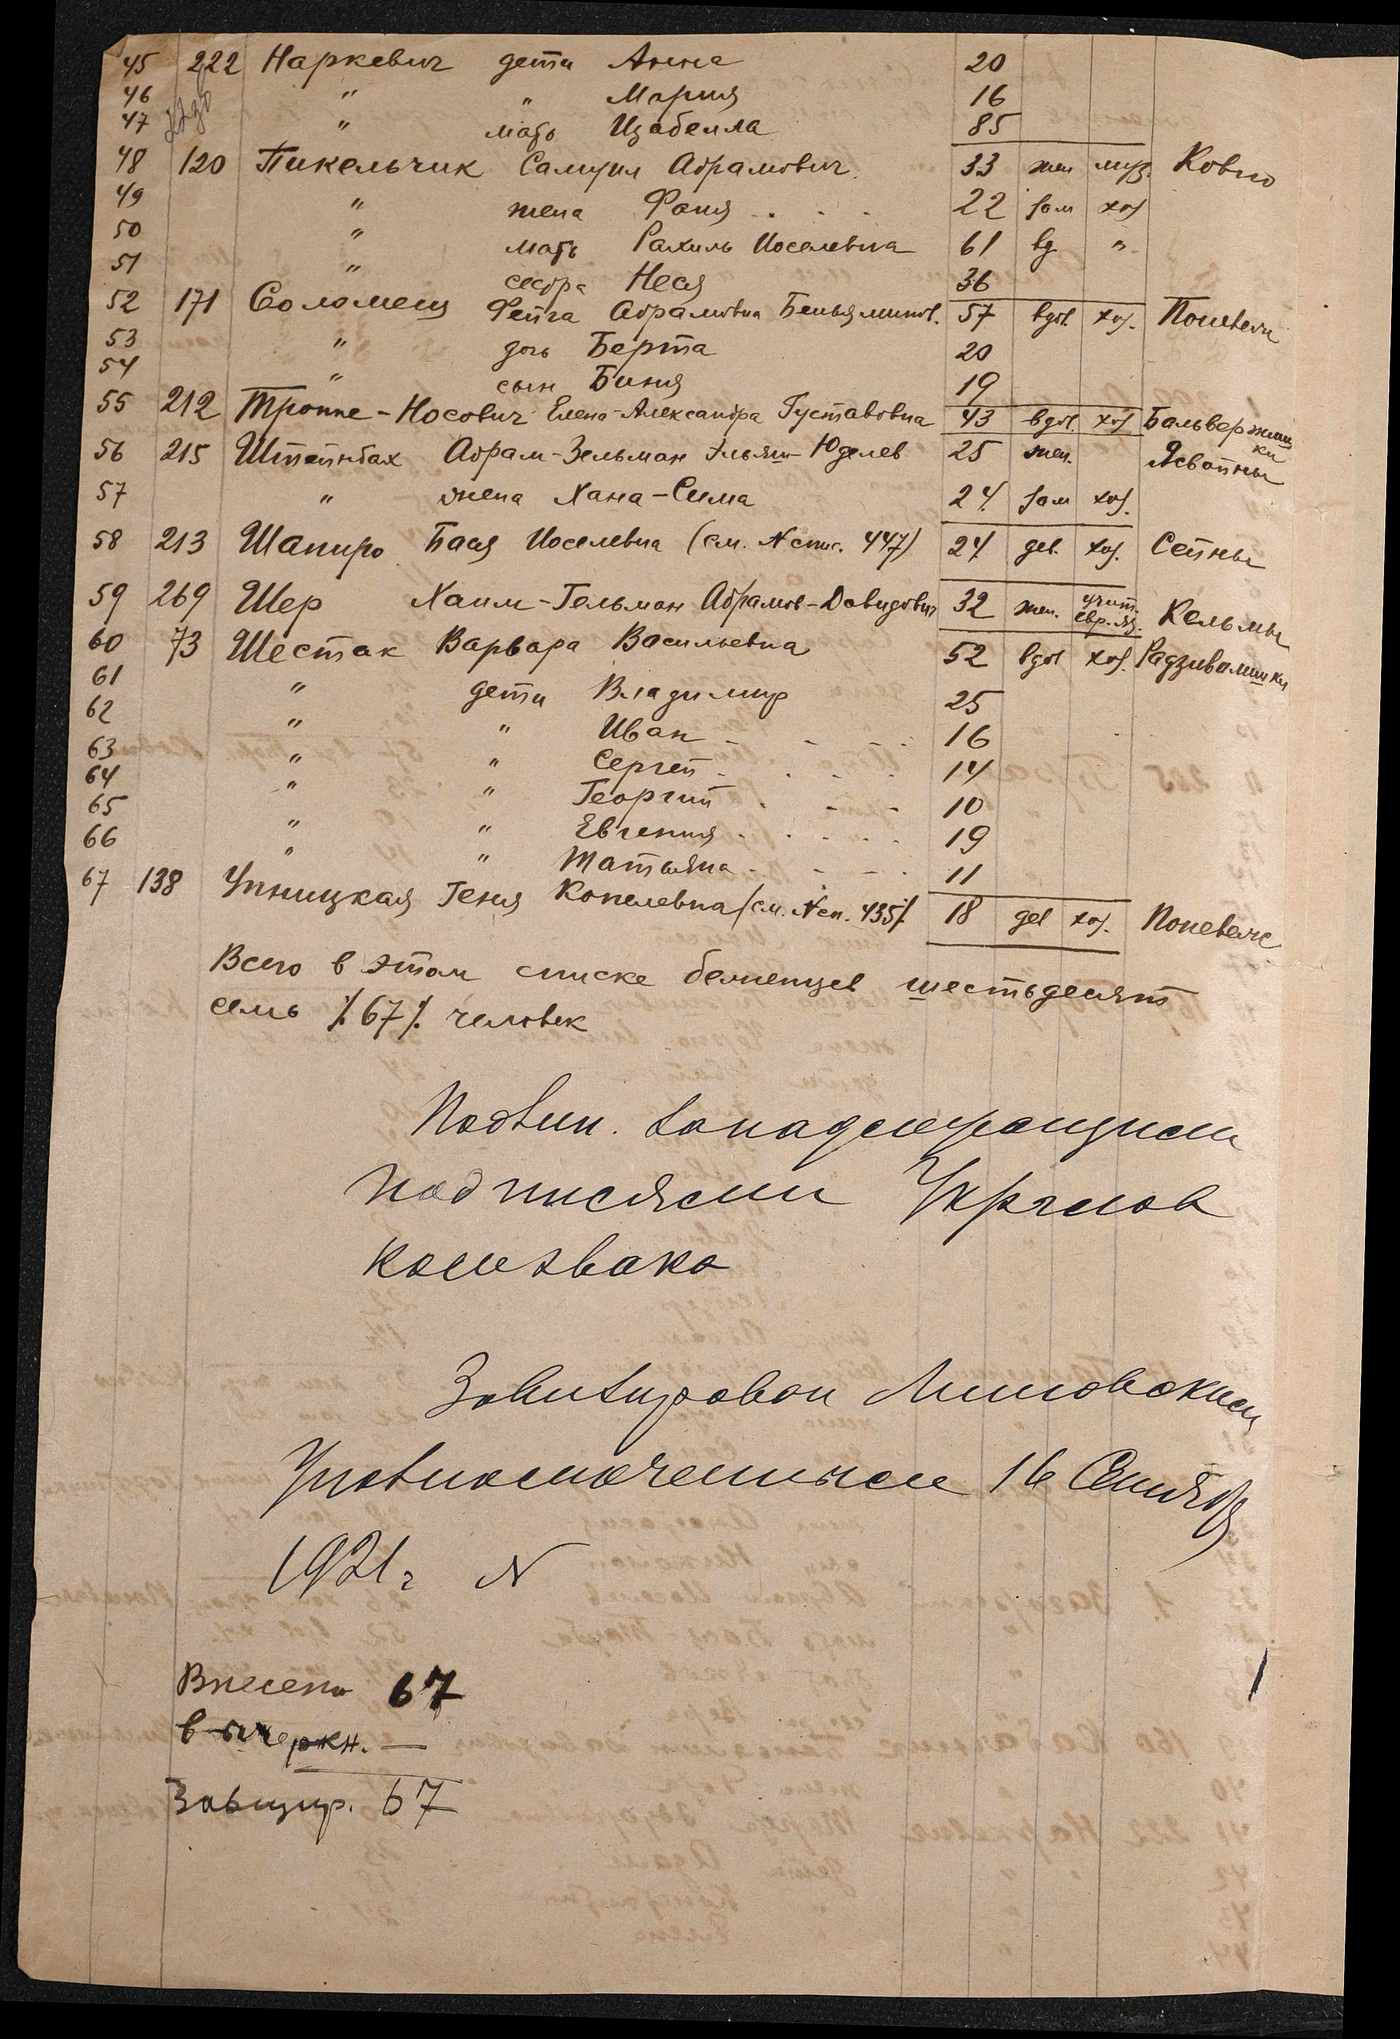 45 222 Наркевич дети Анна 20
46 " " Мария 16
47 " мать Изабелла 85
48 120 Пикельчик Самуил Абрамович 33 жен муз. Ковно
49 " жена Фаня 22 зам хоз
50 " мать Рахиль Иоселевна 61 вд "
51 " сестра Неся 36
52 171 Соломещ Фейга Абрамовна Беньяминов. 57 вдов. хоз. Поневеж
53 " дочь Берта 20
54 " сын Биня 19
55 212 Троппе-Носович Елена-Александра Густавовна 43 вдов. хоз Бальвержишки
56 215 Штейнбах Абрам-Зельман Эльяш-Юделев 25 жен. Ясвойны
57 " жена Хана-Сима 24 зам хоз.
58 213 Шапиро Бася Иоселевна (см. N спис. 447) 24 дев. хоз. Сейны
59 269 Шер Хаим-Гельман Абрамов-Давидович 32 жен. учит. евр. яз. Кельмы
60 73 Шестак Варвара Васильевна 52 вдов хоз. Радзивилишки
61 " дети Владимир 25
62 " " Иван 16
63 " " Сергей 14
64 " " Георгий 10
65 " " Евгения 19
66 " " Татьяна 11
67 138 Упницкая Геня Копелевна /см. N сп. 435/. 18 дев хоз. Поневеж
Всего в этом списке беженцев шестьдесят
семь /67/ человек
Подлин. за надлежащими
подписями
Завизирован Литовским
Уполномоченным 16 Сентября
1921 г N
Внесено 67
вычеркн. —
Завизир. 67